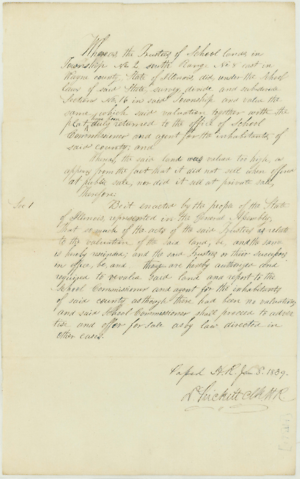 Whereas the Trustees of School lands in
Township No 2 south Range No 8 east in
Wayne county, State of Illinois did, under the School
laws of said State, survey, divide, and subdivide
Section No. 16 in said Township and value the
same which said valuation together with the
plat, duly returned to the office of School
Commissioner and agent for the inhabitants of
said county; and
Whereas, the said land was valued too high, as
appears from the fact that it did not sell when offered
at public sale, nor did it sell at private sale,
Therefore;
Sec 1 Be it enacted by the people of the State
of Illinois represented in the General Assembly,
That so much of the acts of the said Trustees as relate
to the valuation of the said land, be, and the same
is hereby repealed; and the said Trustees or their successors
in office, be, and they are hereby authorized and
required to revalue said land and report to the
School Commissioner and agent for the inhabitants
of said county as though there had been no valuation;
and said School Commissioner shall proceed to adver
tise and offer for sale as by law directed in
other cases.
Passed H.R. Jan 5. 1839.
D. Prickett Clk H.R